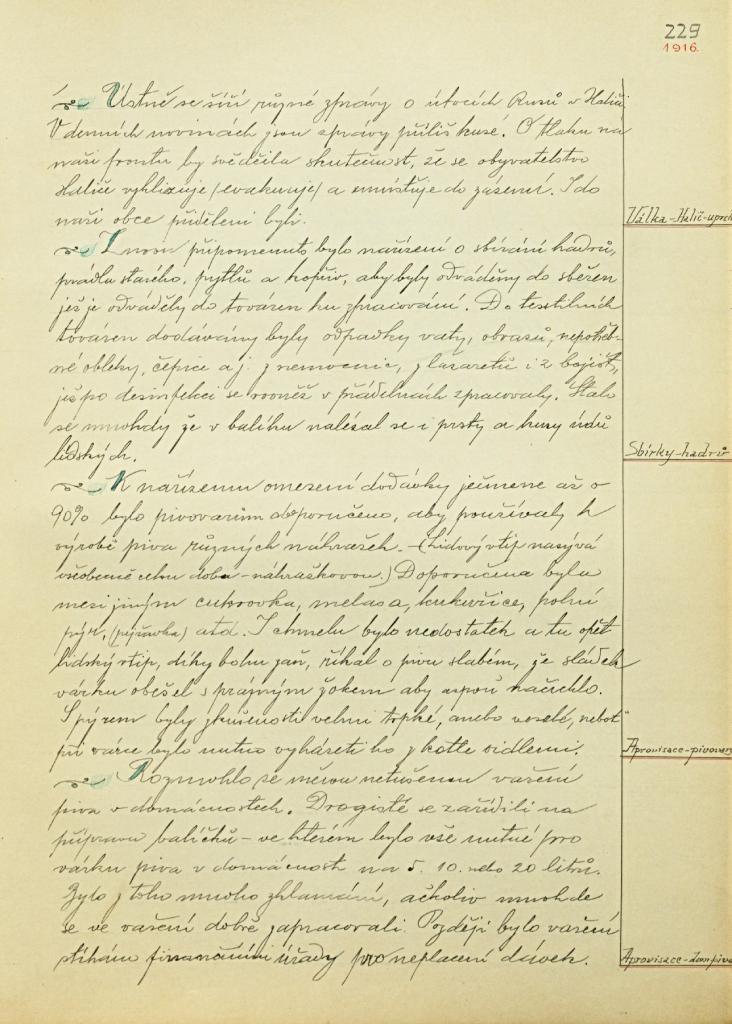 229
1916.
Ústně se šíří různé zprávy o útocích Rusů v Haliči.
V denních novinách jsou zprávy příliš kusé. O tlaku na
naši frontu by svědčila skutečnost, že se obyvatelstvo
Haliče vyklizuje (evakuuje) a umísťuje do zázemí. I do
naší obce přiděleni byli.
Válka-Halič-uprch
I nosn připomenuto bylo nařízení o sbírání hadrů,
prádla starého, pytlů a kopřiv, aby byly odváděny do sběren
jež je odváděly do továren ku zpracování. Do textilních
továren dodávány byly odpadky vaty, obvazů, nepotřeb-
né obleky, čepice a j. z nemocnic, z lazaretů i z bojišť,
jež po desinfekci se rovněž v přádelnách zpracovaly. Stalo
se mnohdy že v balíku nalézal se i prsty a kusy údů
lidských.
Sbírky-hadrů
K nařízenému omezení dodávky ječmene až o
90% bylo pivovarům doporučeno, aby používaly k
výrobě piva různých náhražek. - (Lidový vtip nazývá
všeobecně celou dobu - náhražkovou.) Doporučena byla
mezi jiným cukrovka, melasa, kukuřice, polní
pýr, (pýřavka) atd. I chmelu bylo nedostatek a tu opět
lidský vtip, díky bohu zaň, říkal o pivu slabém, že sládek
várku obešel s prázným žokem aby aspoň načichlo.
S pýrem byly zkušenosti velmi trpké, anebo veselé, neboť
při várce bylo nutno vyházeti ho z kotle vidlemi.
Aprovisace-pivovary
Rozmohlo se měrou netušenou vaření
piva v domácnostech. Drogisté se zařídili na
přípravu balíčků - ve kterém bylo vše nutné pro
várku piva v domácnosti na 5. 10. nebo 20 litrů.
Bylo z toho mnoho zklamání, ačkoliv mnohde
se ve vaření dobře zapracovali. Později bylo vaření
stíháno finančními úřady pro neplacení dávek.
Aprovisace-dom.piva